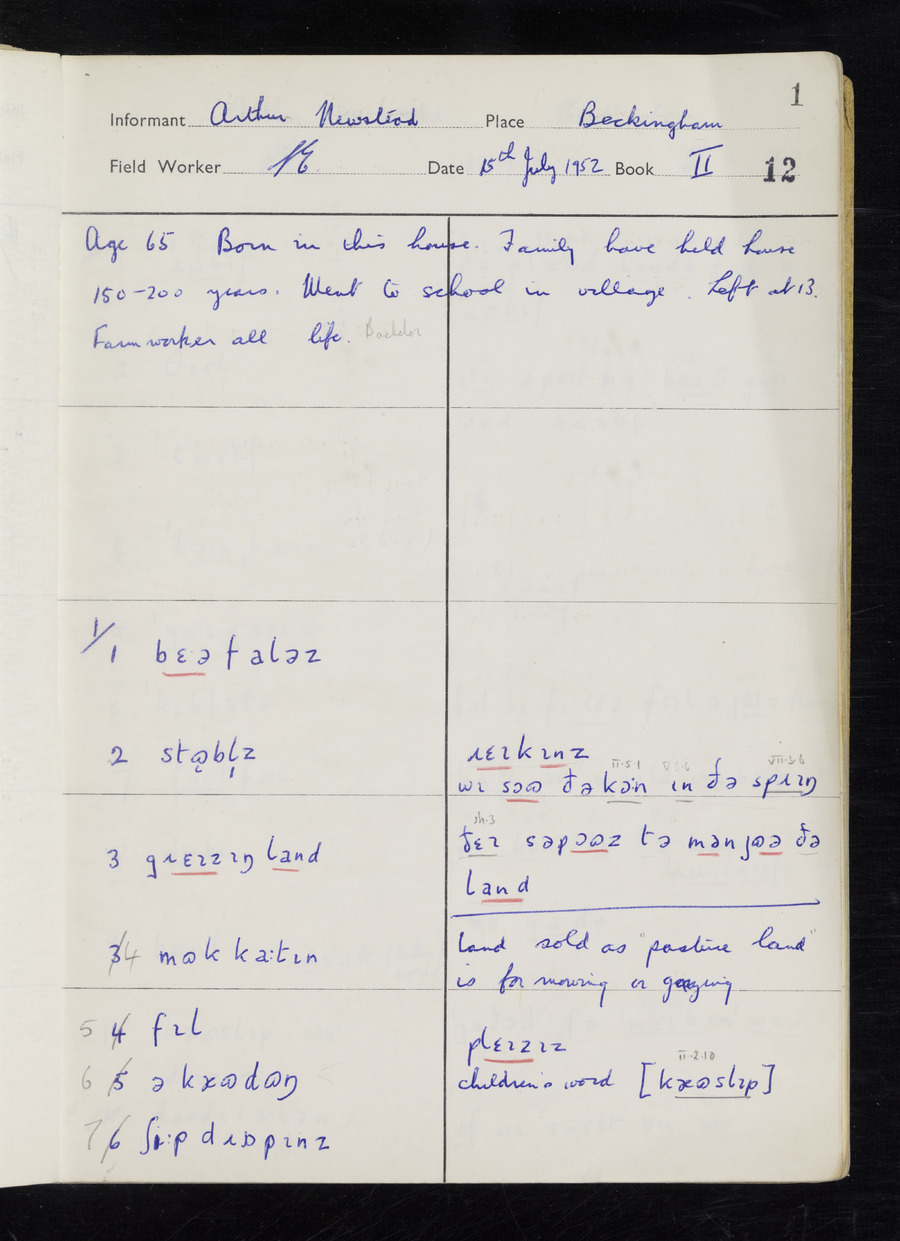 1
Informant Arthur Newstead Place Beckingham
Field Worker Date 15th July 1952 Book II 12
Age 65 Born in this house. Family have held house
150-200 years. Went to school in village. Left at 13.
Farmworker all life. Bachelor
1/
1 bɛəfaləz
2 stɷbl̩z
ɹɛɪkɪnz
II.5.1 VII.5.6
wɪ sɔɷ ðə kəˑn ɪn ðə spɹɪŋ
3 gɹɛɪzɪŋ land
sh.3
ðɛɪ səpɔɷz tə mənjɷə ðə
land
3/4 mɷk ka:tɪn
land sold as "pasture land"
is for mowing or grazing
5 4 fɪl
plɛɪzɪz
6 5 ə kxɷdɷŋ
II.2.10
children's word [kxɷslɪp]
7/6 ʃi:p dɹɒpɪnz